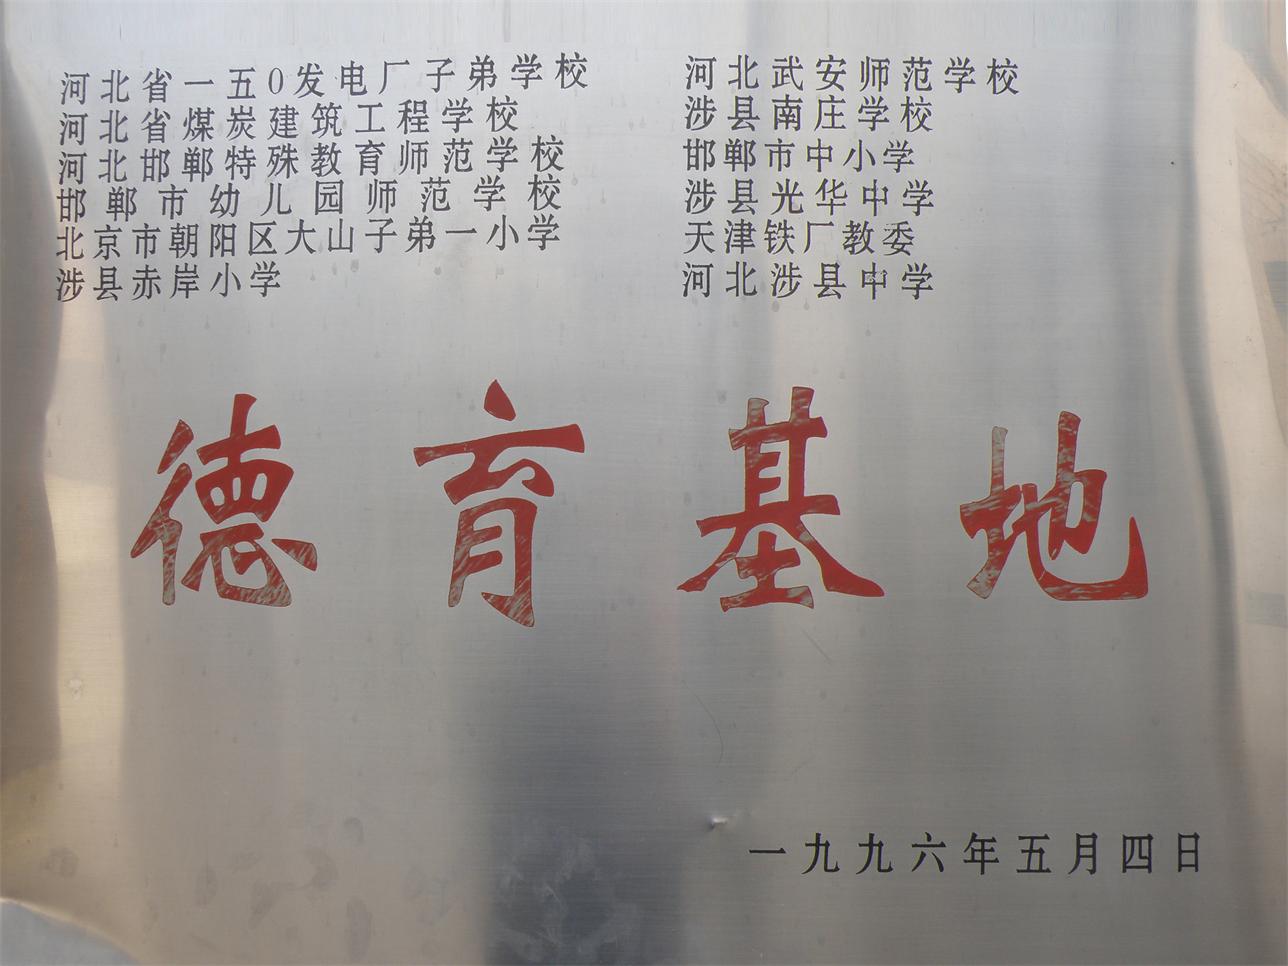 河北省一五0发电厂子弟学校
河北省煤炭建筑工程学校
河北邯郸特殊教育师范学校
邯郸市幼儿园师范学校
北京市朝阳区大山子弟一小学
涉县赤岸小学
河北武安师范学校
涉县南庄学校
邯郸市中小学
涉县光华中学
天津铁厂教委
河北涉县中学
德育基地
一九九六年五月四日